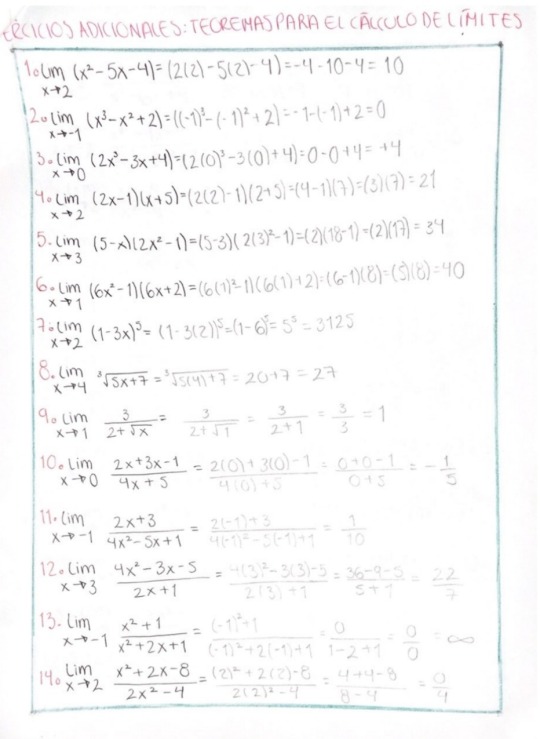 ERCICIOS ADICIONALES: TEOREMAS PARA EL CÁLCULO DE LÍMITES
1. lim x→2 (x²-5x-4)=(2(2)-5(2)-4)=-4-10-4=10
2. lim x→-1 (x³-x²+2)=((-1)³-(-1)²+2)=-1-(-1)+2=0
3. lim x→0 (2x³-3x+4)=(2(0)³-3(0)+4)=0-0+4=+4
4. lim x→2 (2x-1)(x+5)=(2(2)-1)(2+5)=(4-1)(7)=(3)(7)=21
5. lim x→3 (5-x)(2x²-1)=(5-3)(2(3)²-1)=(2)(18-1)=(2)(17)=34
6. lim x→1 (6x²-1)(6x+2)=(6(1)²-1)(6(1)+2)=(6-1)(8)=(5)(8)=40
7. lim x→2 (1-3x)⁵=(1-3(2))⁵=(1-6)⁵=5⁵=3125
8. lim x→4 ³√5x+7=³√5(4)+7=20+7=27
9. lim x→1 3/2+√x = 3/2+√1 = 3/2+1 = 3/3 = 1
10. lim x→0 2x+3x-1/4x+5 = 2(0)+3(0)-1/4(0)+5 = 0+0-1/0+5 = -1/5
11. lim x→-1 2x+3/4x²-5x+1 = 2(-1)+3/4(-1)²-5(-1)+1 = 1/10
12. lim x→3 4x²-3x-5/2x+1 = 4(3)²-3(3)-5/2(3)+1 = 36-9-5/5+1 = 22/7
13. lim x→-1 x²+1/x²+2x+1 = (-1)²+1/(-1)²+2(-1)+1 = 0/1-2+1 = 0/0 = ∞
14. lim x→2 x²+2x-8/2x²-4 = (2)²+2(2)-8/2(2)²-4 = 4+4-8/8-4 = 0/4